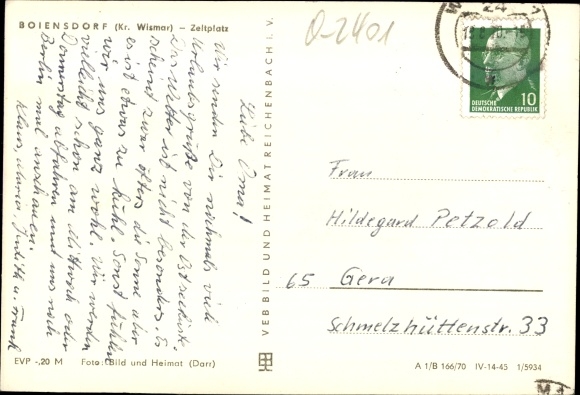 BOIENSDORF (Kr. Wismar) – Zeltplatz
0-2401
24
DEUTSCHE
DEMOKRATISCHE REPUBLIK
10
Liebe Oma!
Wir senden Dir nochmals viele
Urlaubsgrüße von der Ostseeküste.
Das Wetter ist nicht besonders. Es
scheint zwar öfters die Sonne aber
es ist etwas zu kühl. Sonst fühlen
wir uns ganz wohl. Wir werden
vielleicht schon am Mittwoch oder
Donnerstag abfahren und uns noch
Berlin mal anschauen.
Klaus, Judith u. Frank
VEB BILD UND HEIMAT REICHENBACH I. V.
Frau
Hildegard Petzold
65 Gera
Schmelzhüttenstr. 33
EVP -,20 M Foto: Bild und Heimat (Darr)
A 1/B 166/70 IV-14-45 1/5934